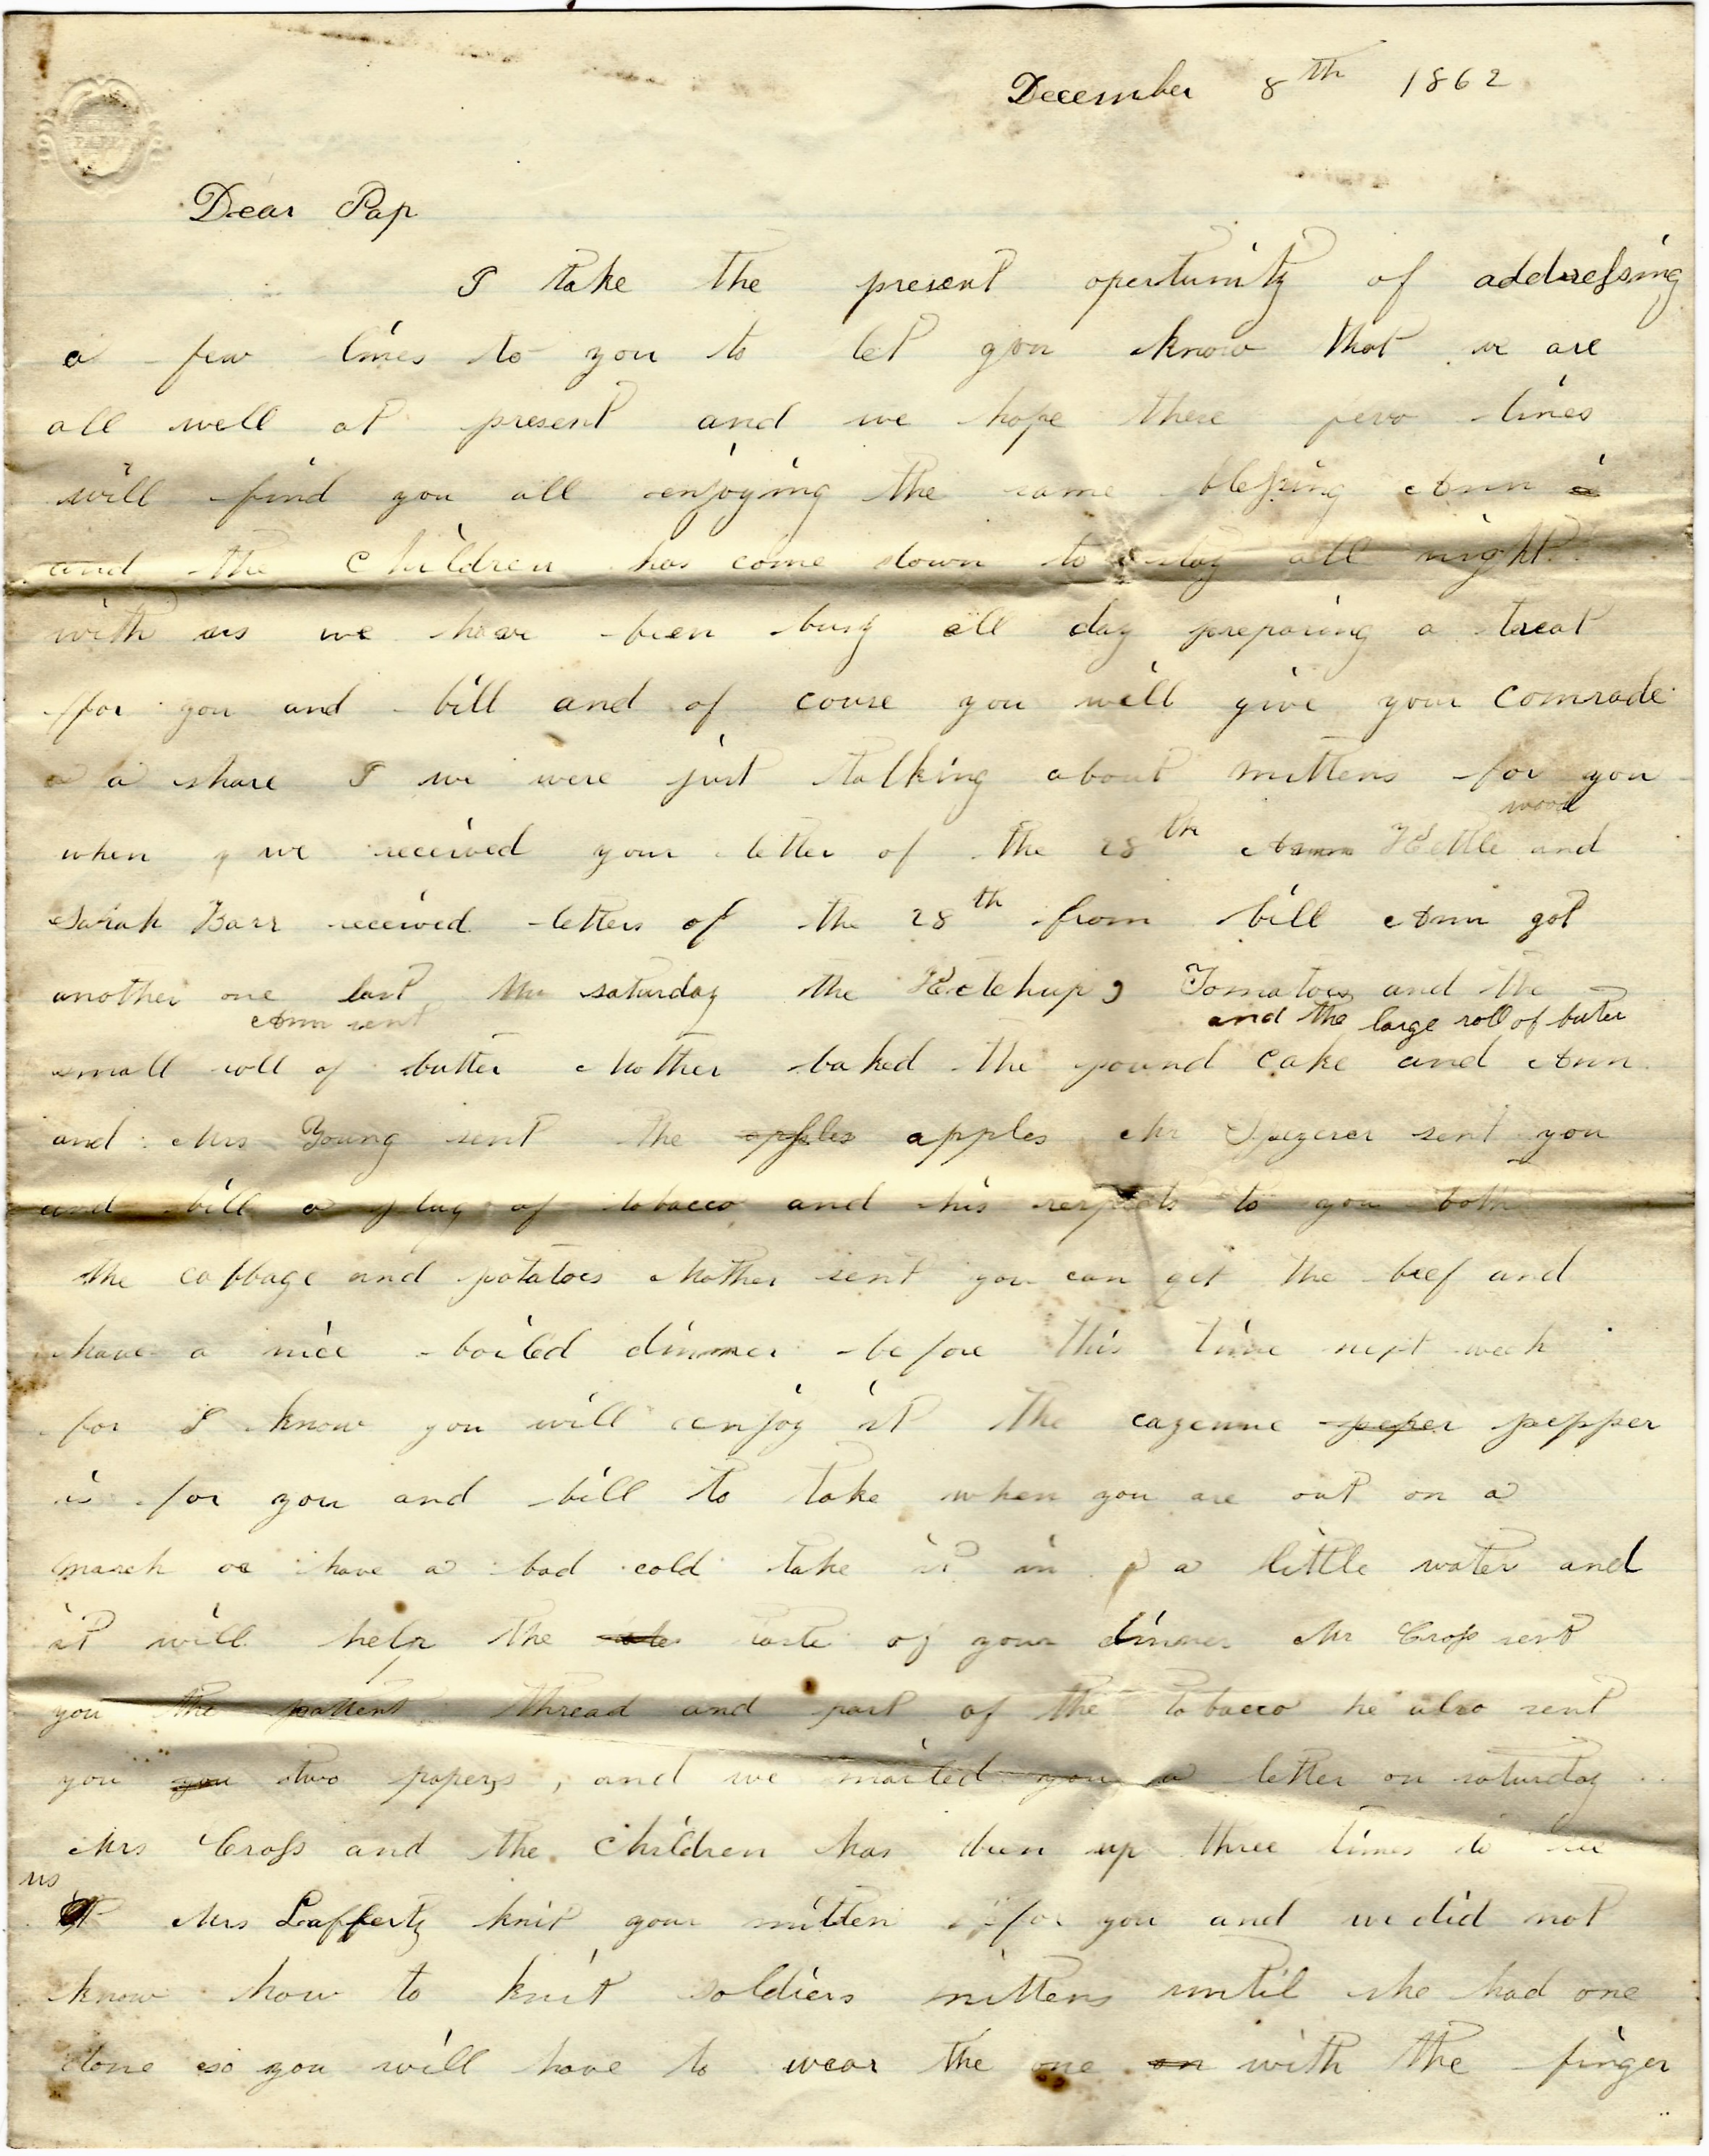 December 8th 1862
Dear Pap
I take the present opertunity of addressing
a few lines to you to let you know that we are
all well at present and we hope these few lines
will find you all enjoying the same blessing Ann is
and the children has come down to stay all night
with us we have been busy all day preparing a treat
for you and bill and of couse you will give your comrade
a a share I we were just talking about mittens for you
wood
when we received your letter of the 28th Ann Kettle and
Sarah Barr received letters of the 28th from bill Ann got
another one last saturday the Ketchup, Tomatoes and the
Ann sent and the large roll of buter
small roll of butter Mother baked the pound cake and Ann
and Mrs Young sent the apples apples Mr sent you
and bill a plug of tobacco and his respects to you both
the cabbage and potatoes Mother sent you can get the beef and
have a nice boiled dinner before this time next week
for I know you will enjoy it the cayenne peper pepper
is for you and bill to take when you are out on a
march or have a bad cold take it in a little water and
it will help the taste of your dinner Mr Cross sent
you the pattent thread and part of the tobacco he also sent
you you two papers, and we mailed you a letter on saturday
Mrs Cross and the children has been up three times to see
us
Mrs Lafferty knit your mitten for you and we did not
know how to knit soldiers mittens until she had one
done so you will have to wear the one on with the finger